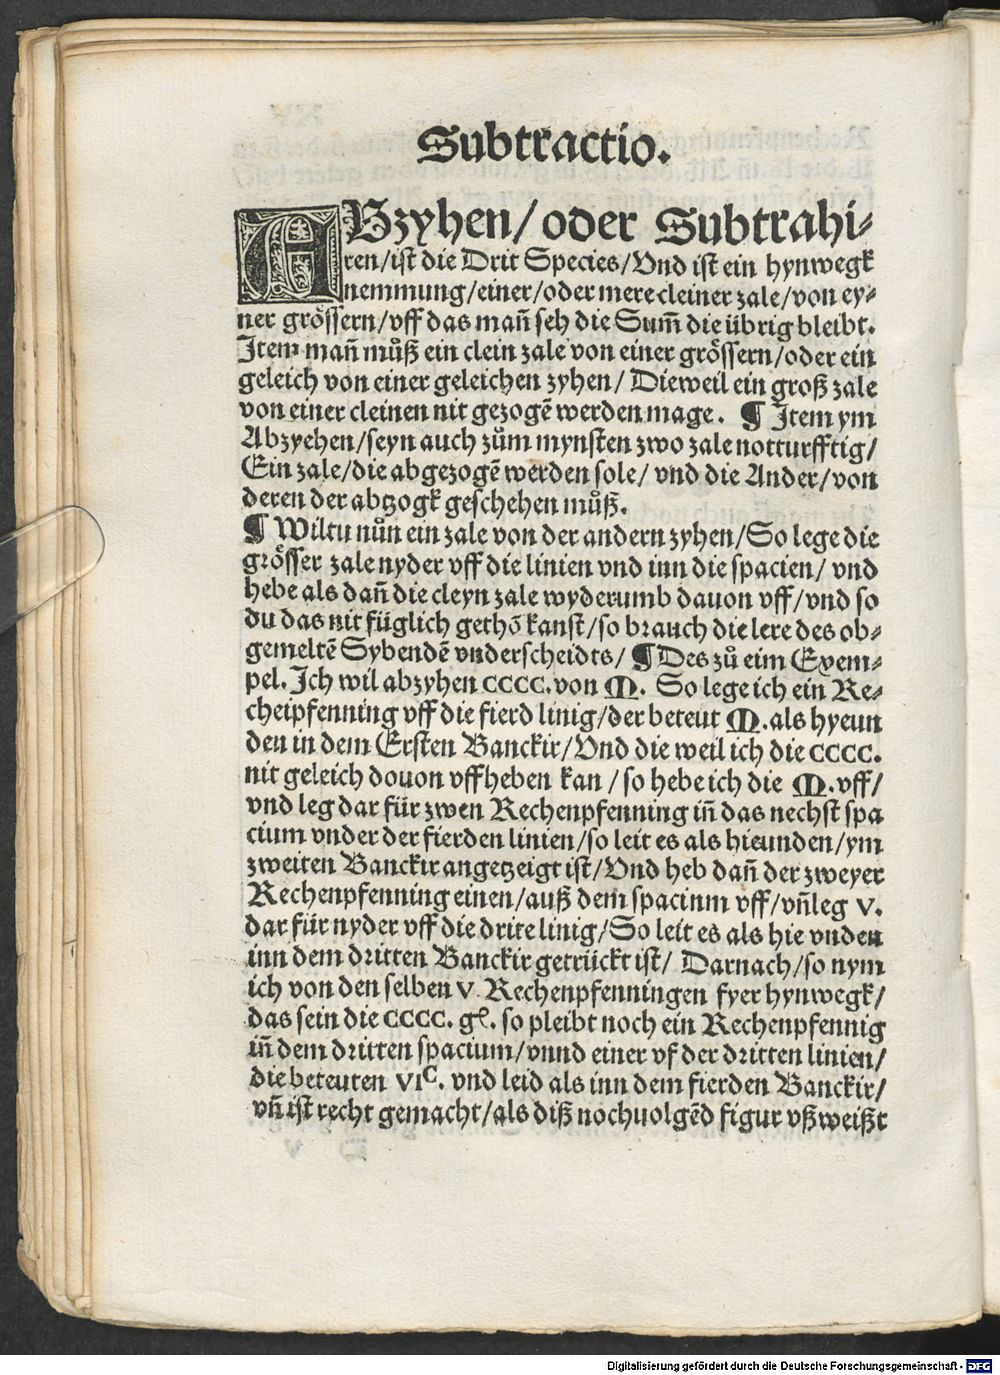 Subtractio.
ABzyhen/oder Subtrahi⸗
ren/ist die Drit Species/Vnd ist ein hynwegk
nemmung/einer/oder mere cleiner zale/von ey⸗
ner grössern/vff das mañ seh die Sum̃ die übrig bleibt.
Item mañ můß ein clein zale von einer grössern/oder ein
geleich von einer geleichen zyhen/ Dieweil ein groß zale
von einer cleinen nit gezogẽ werden mage. ¶ Item ym
Abzyehen/seyn auch zům mynsten zwo zale notturfftig/
Ein zale/die abgezogẽ werden sole/ vnd die Ander/von
deren der abtzogk geschehen můß.
¶ Wiltu nůn ein zale von der andern zyhen/So lege die
grösser zale nyder vff die linien vnd inn die spacien/ vnd
hebe als dañ die cleyn zale wyderumb dauon vff/vnd so
du das nit füglich gethõ kanst/so brauch die lere des ob⸗
gemeltẽ Sybendẽ vnderscheidts/ ¶ Des zů eim Exem⸗
pel. Ich wil abzyhen CCCC. von M. So lege ich ein Re⸗
cheipfenning vff die fierd linig/der beteut M. als hyeun
den in dem Ersten Banckir/Vnd die weil ich die CCCC.
nit geleich douon vffheben kan/so hebe ich die M. vff/
vnd leg dar für zwen Rechenpfenning iñ das nechst spa
cium vnder der fierden linien/so leit es als hieunden/ym
zweiten Banckir angetzeigt ist/Vnd heb dañ der zweyer
Rechenpfenning einen/auß dem spacinm vff/vñ leg V.
dar für nyder vff die drite linig/So leit es als hie vnden
inn dem dritten Banckir getrückt ist/ Darnach/so nym
ich von den selben V. Rechenpfenningen fyer hynwegk/
das sein die CCCC. gł. so pleibt noch ein Rechenpfennig
iñ dem dritten spacium/vnnd einer vf der dritten linien/
die beteuten VIᶜ. vnd leid als inn dem fierden Banckir/
vñ ist recht gemacht/als diß nochuolgẽd figur vßweißt
Digitalisierung gefördert durch die Deutsche Forschungsgemeinschaft - DFG